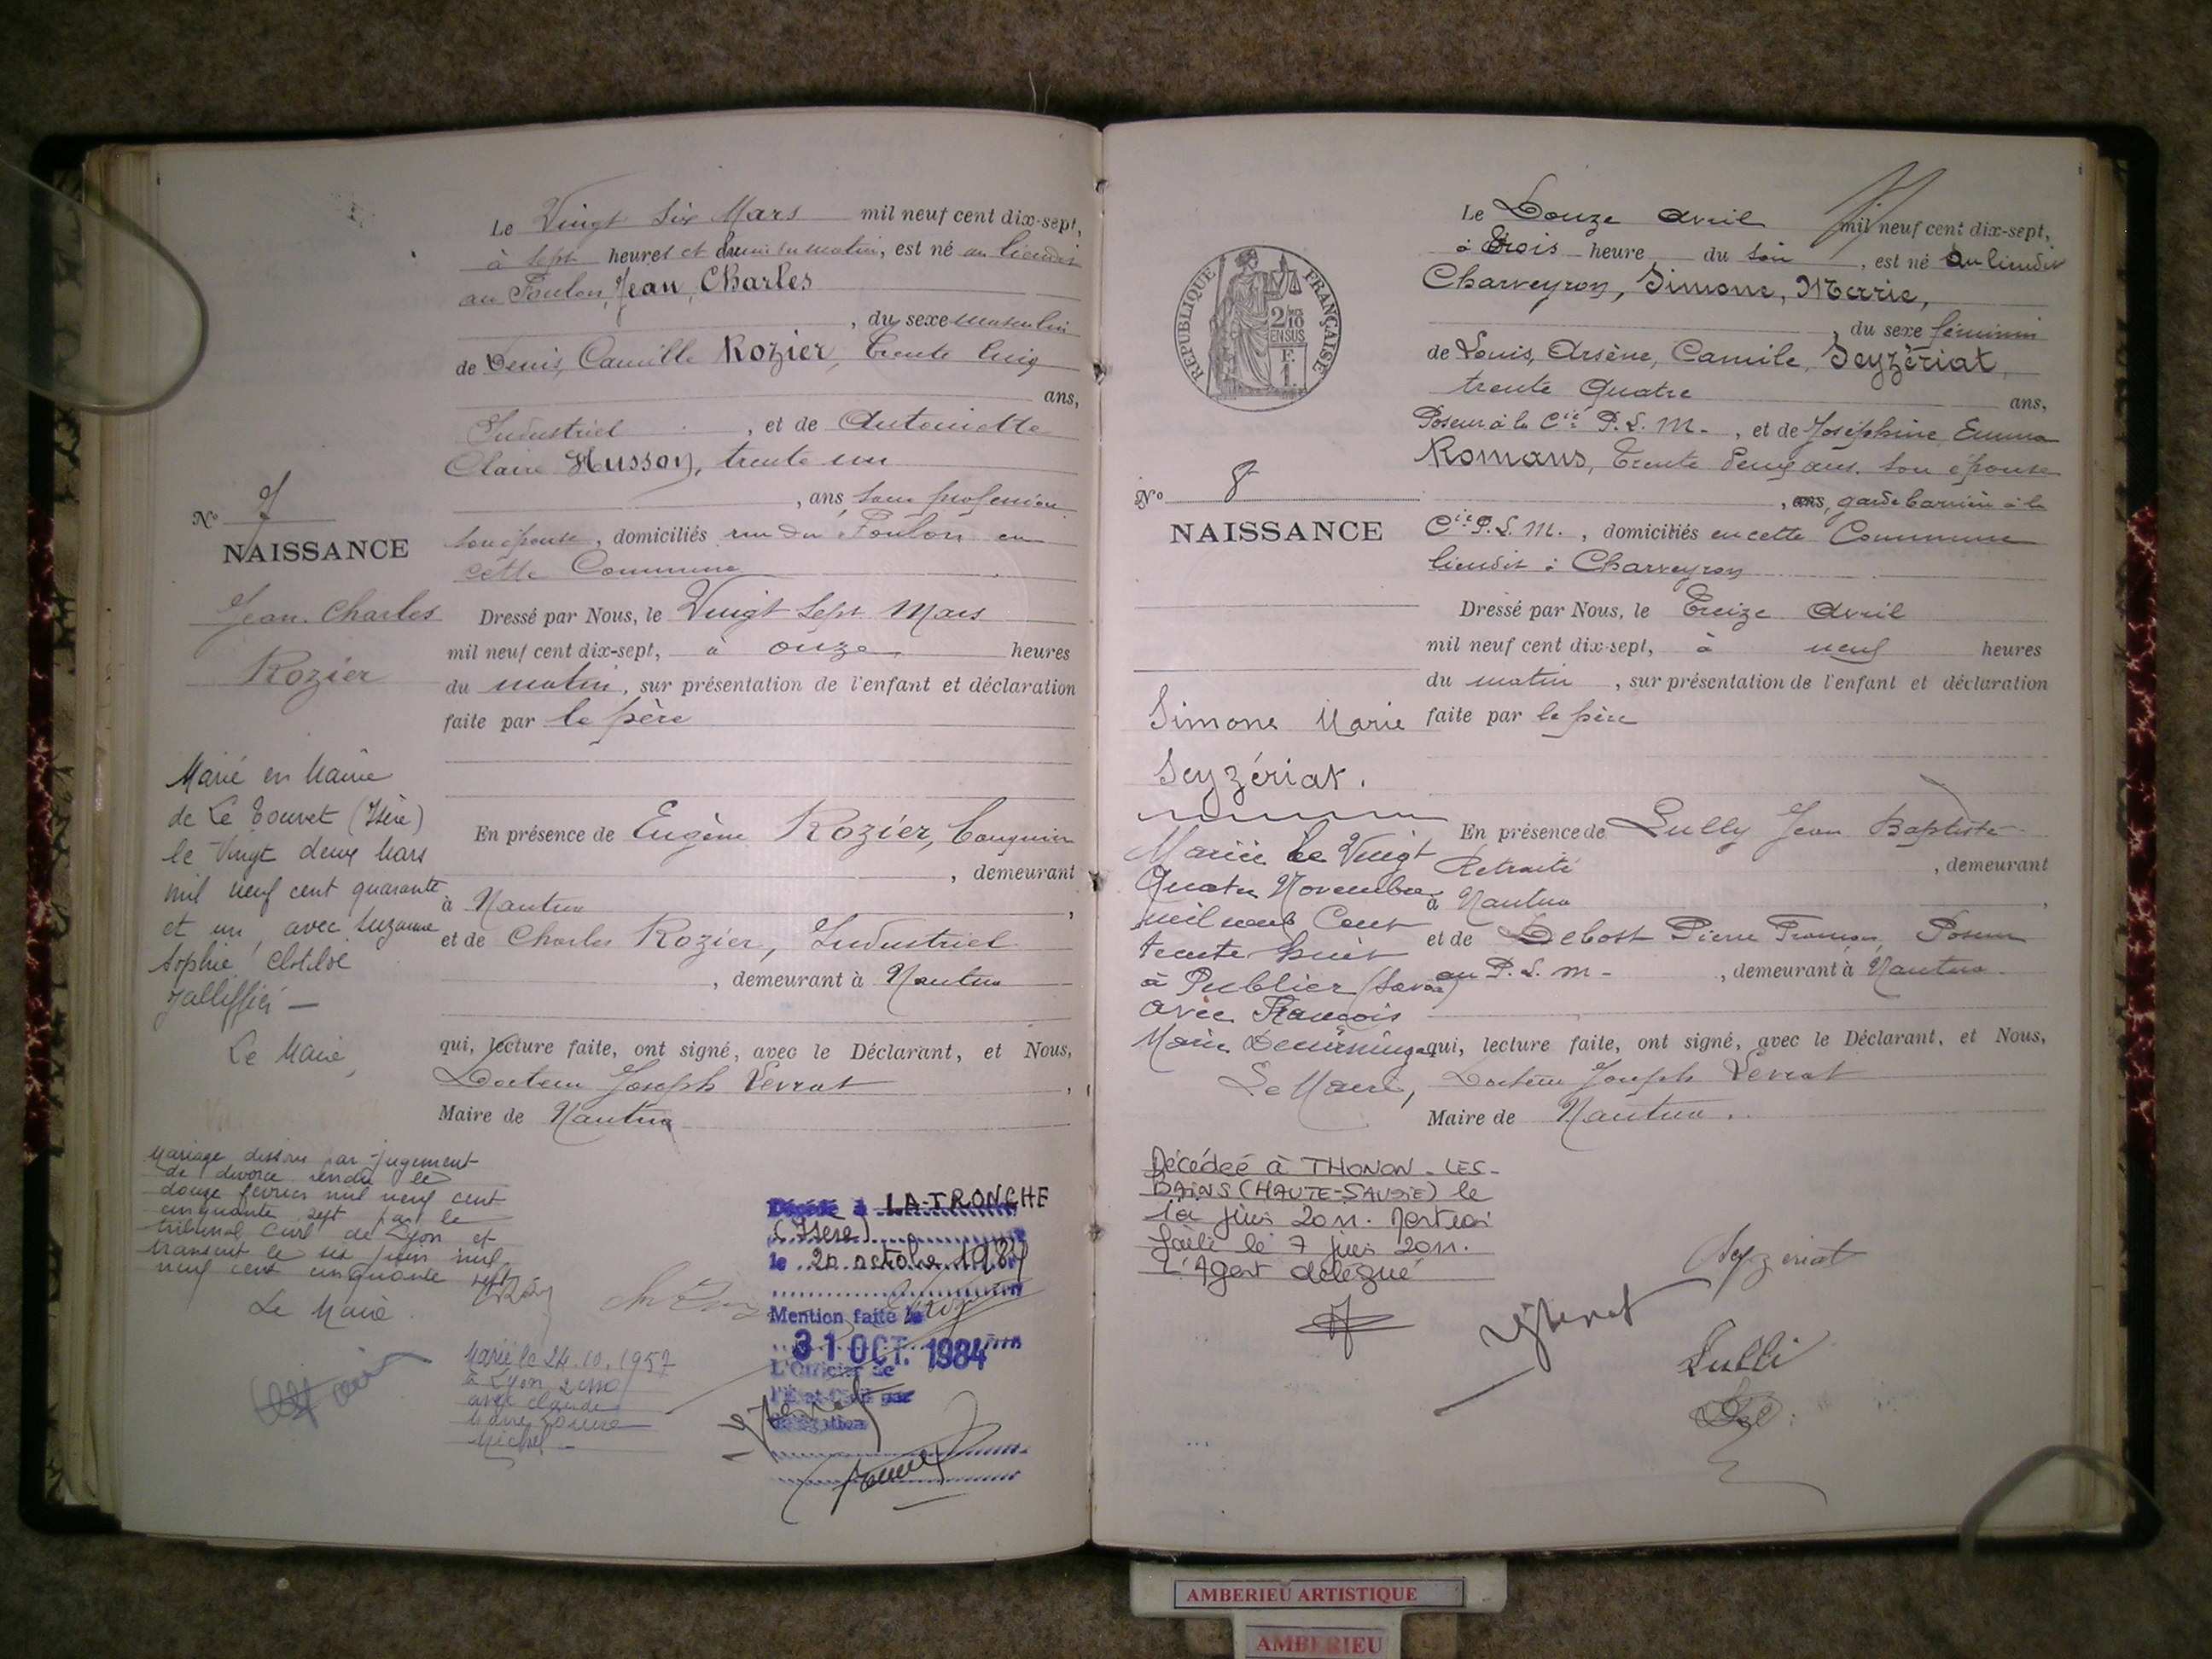 Le Vingt Six Mars mil neuf cent dix-sept,
à sept heures et demie du matin, est né au lieudit
au Foulon, Jean, Charles
, du sexe masculin
de Denis, Camille Rozier, trente cinq
ans,
Industriel , et de Antoinette
Claire Husson, trente un
, ans sans profession
son épouse, domiciliés rue du Foulon en
cette Commune
N° 7
NAISSANCE
Jean Charles
Rozier
Dressé par Nous, le Vingt Sept Mars
mil neuf cent dix-sept, à onze heures
du matin, sur présentation de l'enfant et déclaration
faite par le père
En présence de Eugène Rozier,
, demeurant
à Nantua ,
et de Charles Rozier, Industriel
, demeurant à Nantua
qui, lecture faite, ont signé, avec le Déclarant, et Nous,
Docteur Joseph Levrat ,
Maire de Nantua
Marié en Mairie
de Le Touvet (Isère)
le Vingt deux Mars
mil neuf cent quarante
et un, avec Suzanne
Sophie Clotilde
Jalliffier —
Le Maire,
Mariage dissous par jugement
de divorce rendu le
douze février mil neuf cent
cinquante sept par le
tribunal Civil de Lyon et
transcrit le six juin mil
neuf cent cinquante sept
Le Maire
Marié le 24.10.1957
à Lyon 2
avec Claude
Marie Louise
Michel -
Décédé à LA-TRONCHE
(Isère)
le 20 octobre 1984
Mention faite le
31 OCT. 1984
L'Officier de
l'Etat-Civil par
délégation
REPUBLIQUE FRANÇAISE
2/10
EN SUS
F.
1.
Le Douze avril mil neuf cent dix-sept,
à Trois heure du soir , est né au lieudit
Charveyron, Simone, Marie,
, du sexe féminin
de Louis, Arsène, Camile, Seyzériat,
trente Quatre ans,
Poseur à la Cie P. L. M. , et de Joséphine Emma
Romans, trente deux ans, son épouse
, ans, garde barrière à la
Cie P. L. M. , domiciliés en cette Commune
lieudit : Charveyron
N° 8
NAISSANCE
Simone Marie
Seyzériat.
Dressé par Nous, le Treize Avril
mil neuf cent dix-sept, à neuf heures
du matin , sur présentation de l'enfant et déclaration
faite par le père
En présence de Lully Jean Baptiste
Retraité , demeurant
à Nantua ,
et de Debost Pierre François, Poseur
au P. L. M - , demeurant à Nantua
qui, lecture faite, ont signé, avec le Déclarant, et Nous,
Docteur Joseph Levrat
Maire de Nantua.
Mariée le Vingt
Quatre Novembre
mil neuf Cent
trente huit
à Publier (Savoie)
avec François
Marie
Le Maire,
Décédée à THONON-LES-
BAINS (HAUTE-SAVOIE) le
1er juin 2011. Mention
faite le 7 juin 2011.
L'Agent délégué
Seyzeriat
Lulli
AMBERIEU ARTISTIQUE
AMBERIEU